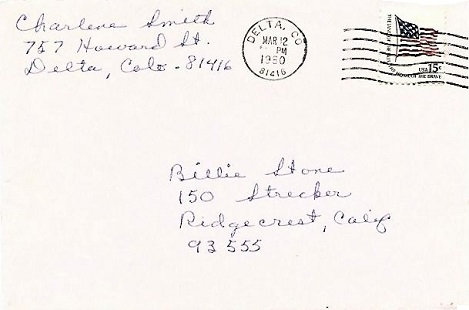 Charlene Smith
757 Howard St.
Delta, Colo. 81416
DELTA, CO
MAR 12
PM
1980
81416
USA 15c
Billie Stone
150 Strecker
Ridgecrest, Calif
93555